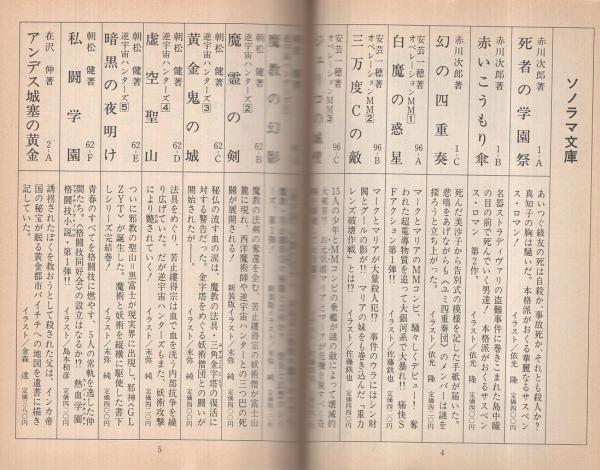 ソノラマ文庫
赤川次郎著
死者の学園祭 1-A
あいつぐ級友の死は自殺か、事故死か、それとも殺人か?
真知子の胸は騒いだ。本格派がおくる華麗なるサスペン
ス・ロマン! イラスト/依光 隆 定価四二〇円
赤川次郎著
赤いこうもり傘 1-B
名器ストラディヴァリの盗難事件に巻きこまれた島中瞳
の目の前で死んでいく男達! 本格派がおくるサスペン
ス・ロマン、第2作。 イラスト/依光 隆
赤川次郎著
幻の四重奏 1-C
死んだ美沙子から告別式の模様を記した手紙が届いた。
悲鳴をあげながらも《ユミ四重奏団》のメンバーは謎を
探ろうと立ち上がった。 イラスト/依光 隆
安芸一穂著
オペレーションMM①
白魔の惑星 96-A
マークとマリアのMMコンビ、騒々しくデビュー! 奪
われた超電導物質を追って大銀河系で大暴れ!! 痛快S
Fアクション第1弾!! イラスト/佐藤鉄也
安芸一穂著
オペレーションMM②
三万度Cの敵 96-B
マークとマリアが大量殺人犯!? 事件のウラにはシン財
閥とゲールの影が!! マリアの妹をも巻き込んだ「重力
レンズ破壊作戦」とは!? イラスト/佐藤鉄也
安芸一穂著
オペレーションMM③
96-C
15人の少年とMMコンビの乗艦が謎の敵によって壊滅的
朝松 健著
逆宇宙ハンターズ①
魔教の幻影
朝松 健著
逆宇宙ハンターズ②
魔霊の剣 62-B
魔教の法剣の奪還を企む、苦止縷得宗の妖術僧が富士山
麓に現れ、西洋魔術師や逆宇宙ハンターとの三つ巴の死
闘が展開される! 新装版イラスト/末弥 純
朝松 健著
逆宇宙ハンターズ③
黄金鬼の城 62-C
秘仏の流す血の涙は、魔教の法具・三角金字塔の復活に
対する警告だった。金字塔をめぐる妖術僧団との闘いが
開始されたが―。 イラスト/末弥 純
朝松 健著
逆宇宙ハンターズ④
虚空聖山 62-D
法具をめぐり、苦止縷得宗は血で血を洗う内部抗争を繰
り広げていた。だが逆宇宙ハンターズもまた、妖術攻撃
により斃されていく! イラスト/末弥 純
朝松 健著
逆宇宙ハンターズ⑤
暗黒の夜明け 62-E
ついに邪教の聖山=黒富士が現実界に出現し、邪神〈GL
ZYT〉が誕生した。魔術と妖術を縦横に駆使した書下
しシリーズ完結巻! イラスト/末弥 純
朝松 健著
私闘学園 62-F
青春のすべてを格闘技に燃やす、5人の常軌を逸した仲
間たち。〈格闘技同好会〉の設立はなるか!? 熱血学園
格闘技小説・第1弾!! イラスト/島本和彦
在沢 伸著
アンデス城塞の黄金 2-A
誘拐されたぼくを救おうとして殺された父は、インカ帝
国の秘宝が眠る黄金都市パイチチへの地図を遺書に描き
記していた。 イラスト/金森 達
4
5